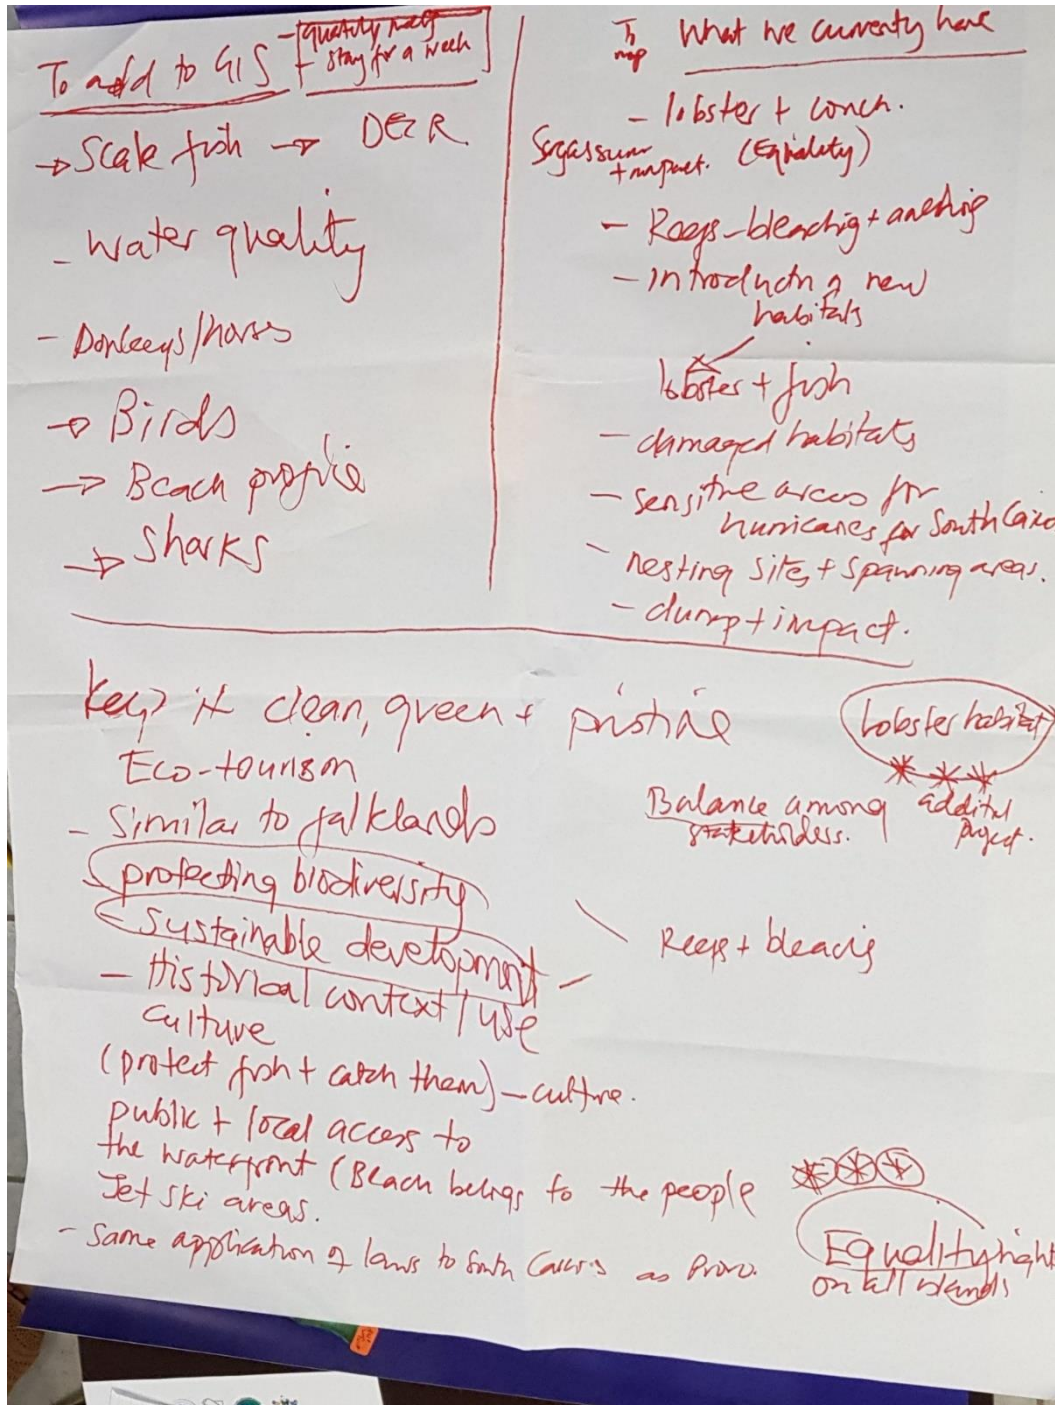 To add to GIS
- quality may
stay for a week
→ Scale fish → DECR
- water quality
- Donkeys/horses
→ Birds
→ Beach profile
→ Sharks
To map
What we currently have
- lobster + conch.
Sargassum + impact. (Equality)
- Reefs - bleaching +
- introductn of new
habitats
lobster + fish
- damaged habitats
- sensitive areas for
hurricanes for South Caico
- nesting sites + spawning areas.
- dump + impact.
Keep it clean, green + pristine
Eco-tourism
- Similar to falklands
- protecting biodiversity
- sustainable development
- Historical context / use
culture
(protect fish + catch them) - culture.
public + local access to
the waterfront (Beach belongs to the people
Jet ski areas.
- Same application of laws to South Caicos as Provo.
Lobster habitat
Balance among
stakeholders.
additnl
project.
Reefs + bleachig
Equality right
on all islands